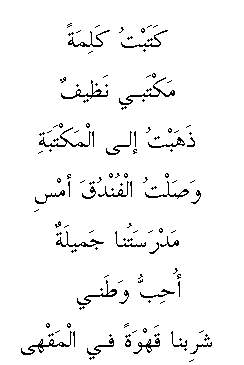 كَتَبْتُ كَلِمَةً
مَكْتَبي نَظيفٌ
ذَهَبْتُ إلى الْمَكْتَبَةِ
وَصَلْتُ الْفُنْدُقَ أمْسِ
مَدْرَسَتُنا جَميلَةٌ
أُحِبُّ وَطَني
شَرِبنا قَهْوَةً في الْمَقْهى